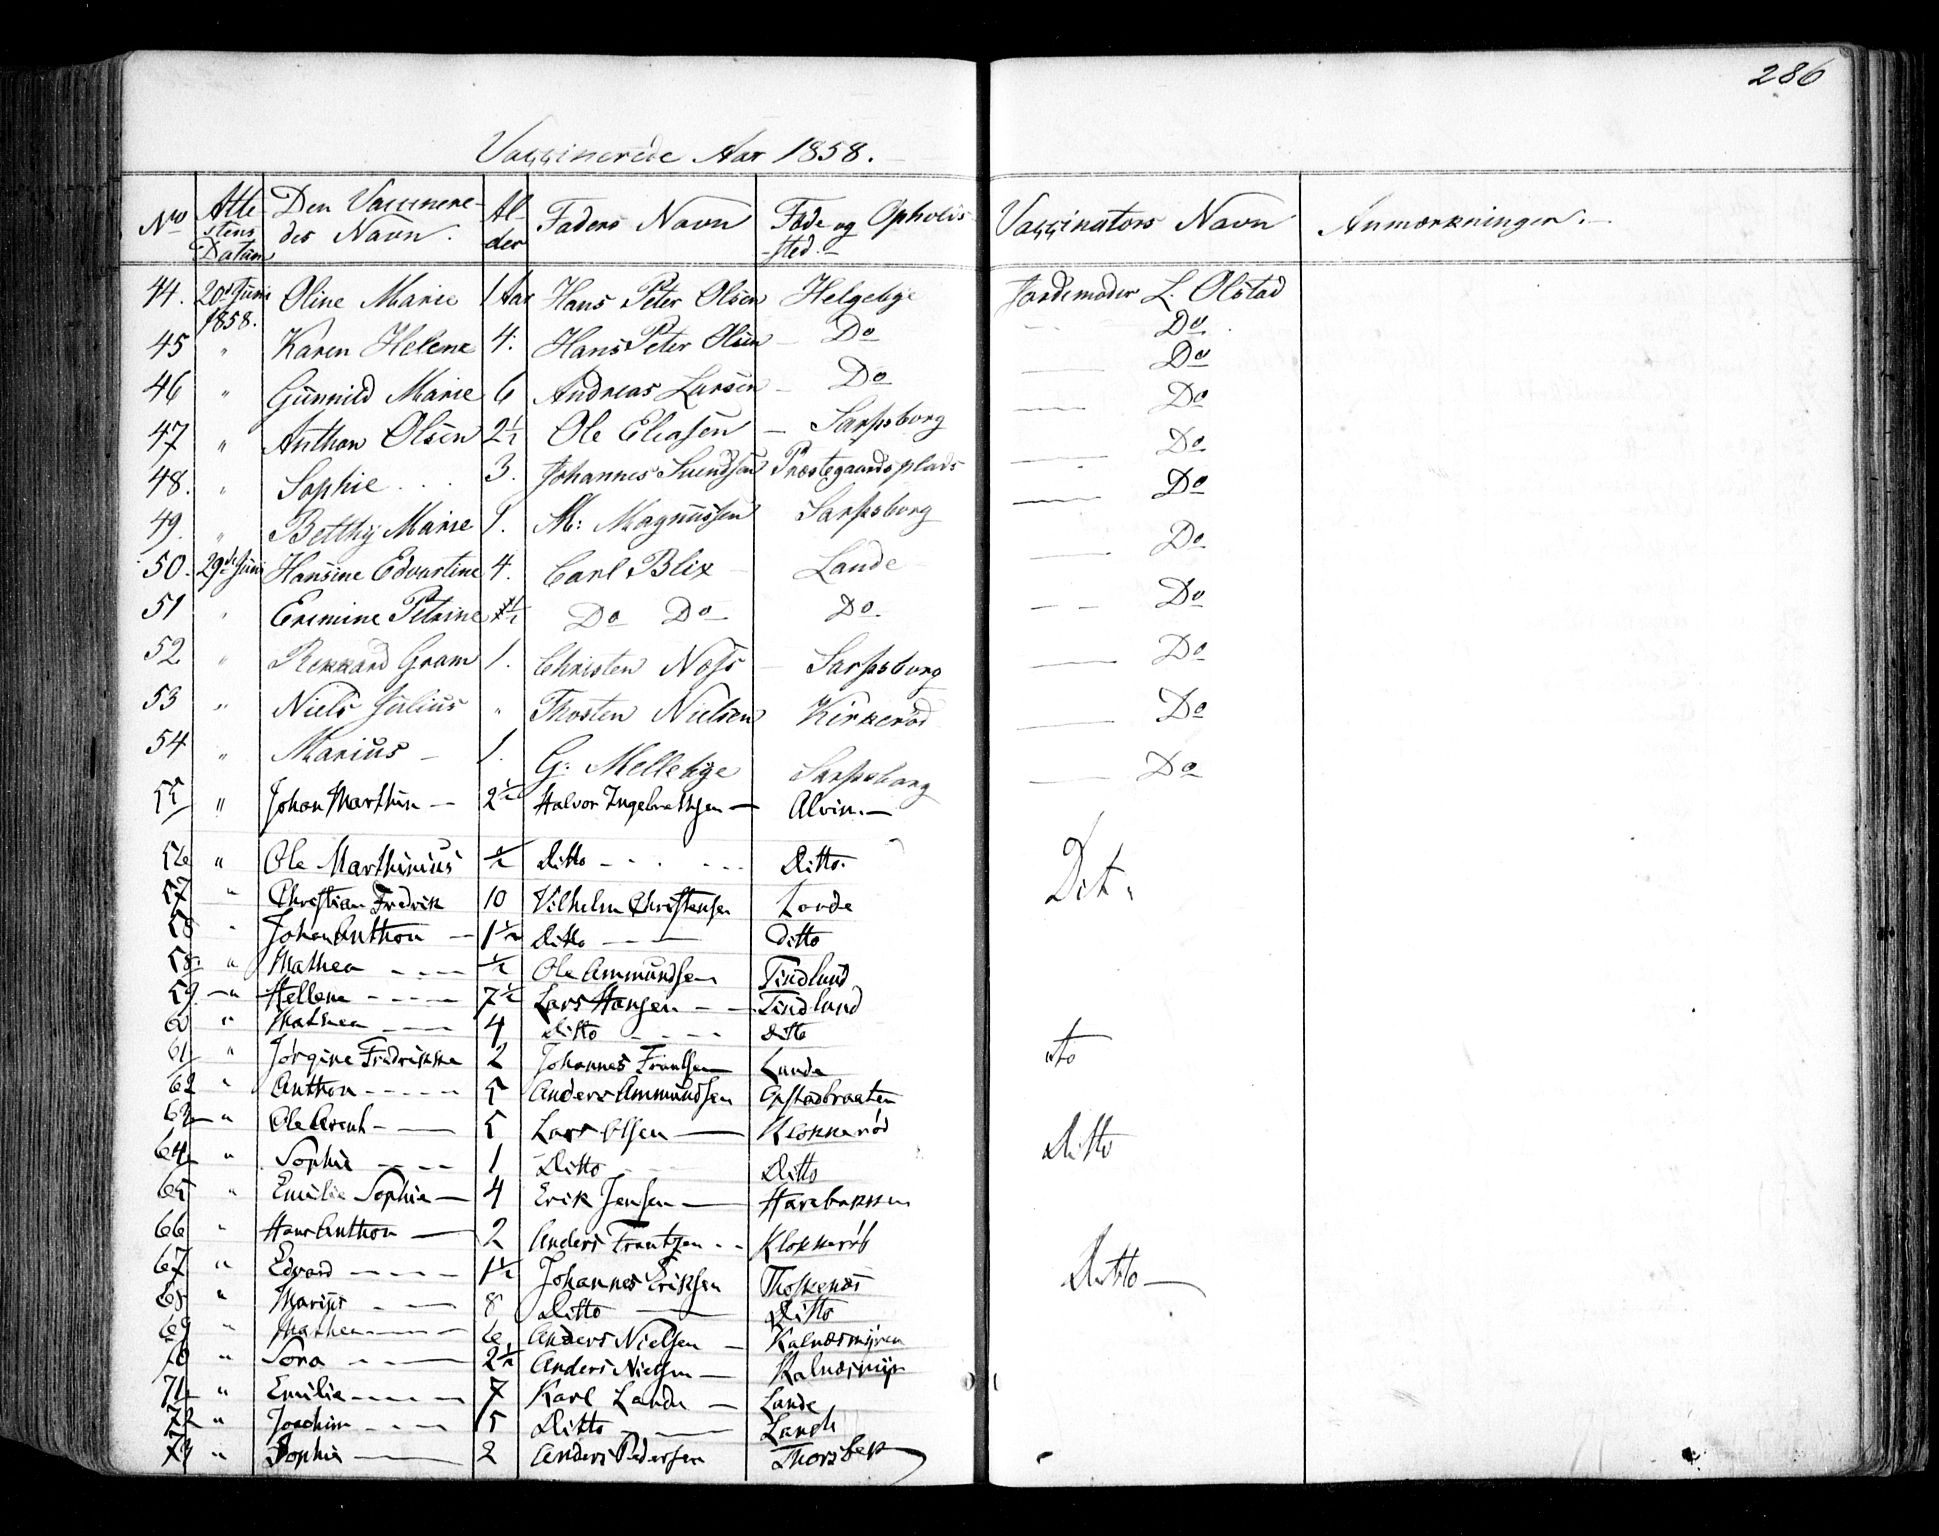 286
Vaccinerede Aar 1858.
No Attestens Datum Den Vaccineredes Navn. Alder Faders Navn Føde og Opholdssted. Vaccinators Navn Anmærkninger.
44. 20de Juni 1858. Oline Marie 1 Aar Hans Peter Olsen Helgebye Jordemoder L. Olstad
45 " Karen Helene 4. Hans Peter Olsen Do Do
46 " Gunnild Marie 6 Andreas Larsen Do Do
47 " Anthon Olsen 2½ Ole Eliasen Sarpsborg Do
48. " Sophie 3. Johannes Svendsen Præstegaardsplads Do
49. " Betthy Marie 1. M: Magnussen Sarpsborg Do
50. 29de Juni Hansine Edvartine 4. Carl Blix Lande Do
51 " Ermine Petrine ½ Do Do Do Do
52 " Rikkard Gram 1. Christen Sarpsborg Do
53 " Niels Julius " Thosten Nielsen Kirkerød Do
54 " Marius 1. G: Mellebye Sarpsborg Do
55 " Johan Marthin 2½ Halvor Ingebrettsen Alvin.
56 " Ole Marthinius ½ Ditto Ditto. Dit.
57 " Christian Fredrik 10 Vilhelm Christensen Lande
58 " Johan Anthon 1½ Ditto Ditto
58 " Mathea ½ Ole Ammundsen Tindlund
59. " Hellene 7½ Lars Hansen Tindlund
60 " Mathea 4 Ditto Ditto
61 " Jørgine Fredrikke 2 Johannes Frantsen Lande
62 " Anthon 5 Anders Ammundsen Opstadbraaten
63 " Ole Arent 5 Lars Olsen Klokkerød Ditto
64 " Sophie 1 Ditto Ditto
65 " Emilie Sophie 4 Erik Jensen Harebakken
66 " Hans Anthon 2 Anders Frantzen Klokkerød
67 " Edvard 1½ Johannes Eriksen Ditto
68 " Marius 8 Ditto Ditto
69 " Mathea 6 Anders Nielsen Kalnæsmyren
70 " Sora 2½ Anders Nielsen Kalnæsmyr
71 " Emilie 7 Karl Lande Lande
72 " Joachim 5 Ditto Lande
73 " Sophie 2 Anders Pedersen Thorsbek